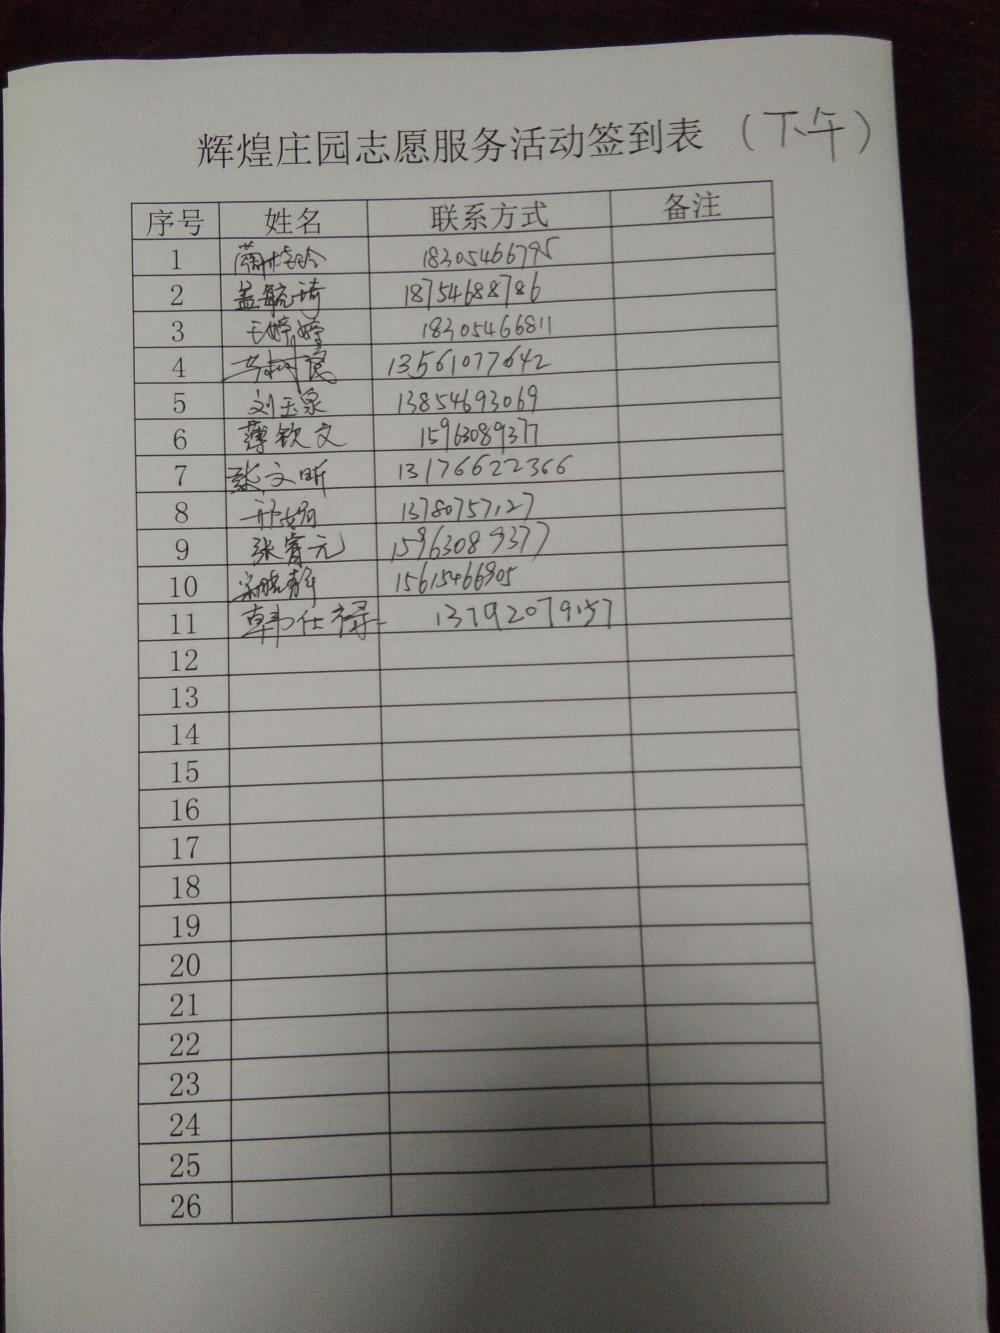 辉煌庄园志愿服务活动签到表 （下午）
序号 姓名 联系方式 备注
1 18305466795
2 盖毓琦 18754688786
3 王婷婷 18305466811
4 13561077642
5 刘玉泉 13854693069
6 薄钦文 15963089377
7 张文昕 13176622366
8 邢娟 13780757127
9 张睿元 15963089377
10 宋晓静 15615466905
11 韩仕禄 13792079157
12
13
14
15
16
17
18
19
20
21
22
23
24
25
26